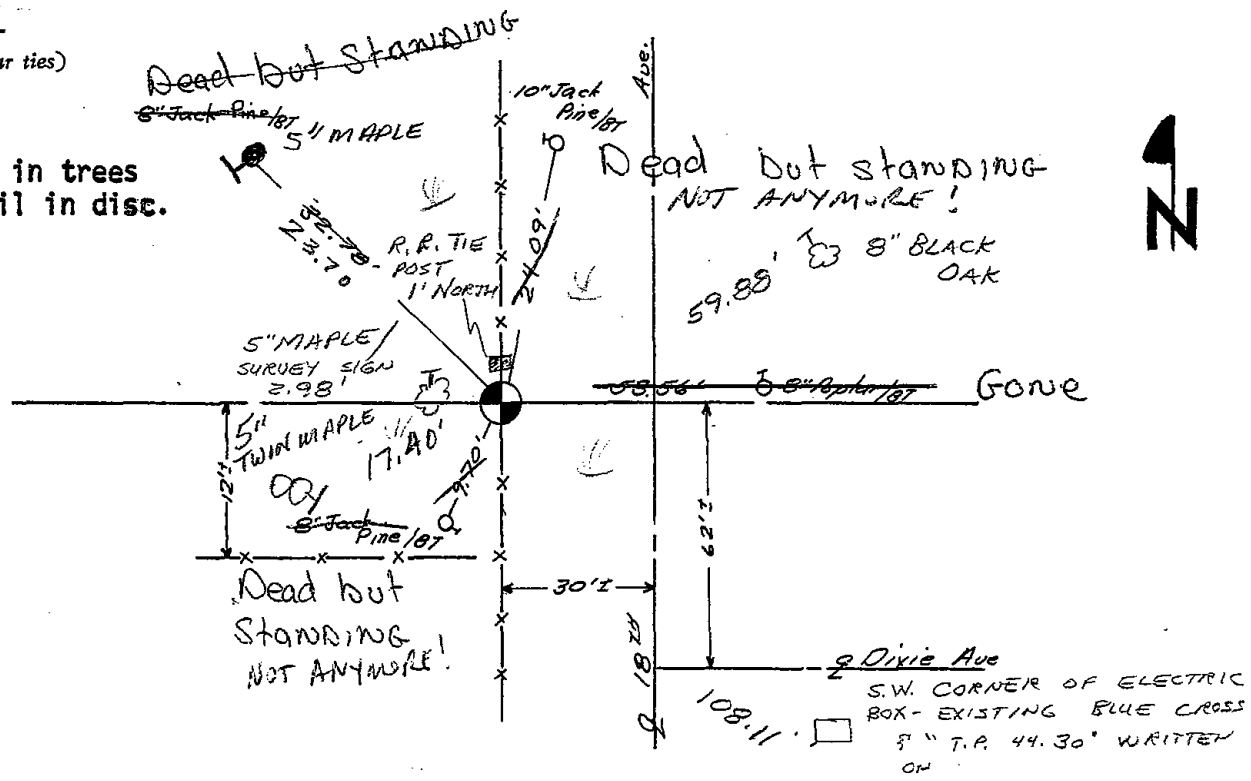 ur ties)
in trees
il in disc.
Dead but Standing
8" Jack Pine/BT
5" MAPLE
10" Jack
Pine/BT
Ave.
Dead but standing
NOT ANYMORE!
N
8" BLACK
OAK
59.88'
R.R. TIE
POST
1' NORTH
24.09'
5" MAPLE/
SURVEY SIGN
2.98'
58.56'
8" Poplar/BT
Gone
5"
TWIN MAPLE
17.40'
9.70'
12'±
8" Jack
Pine/BT
Dead but
Standing
NOT ANYMORE!
30'±
62'±
18TH
Dixie Ave
108.11
S.W. CORNER OF ELECTRIC
BOX - EXISTING BLUE CROSS
" T.P. 44.30' WRITTEN
ON